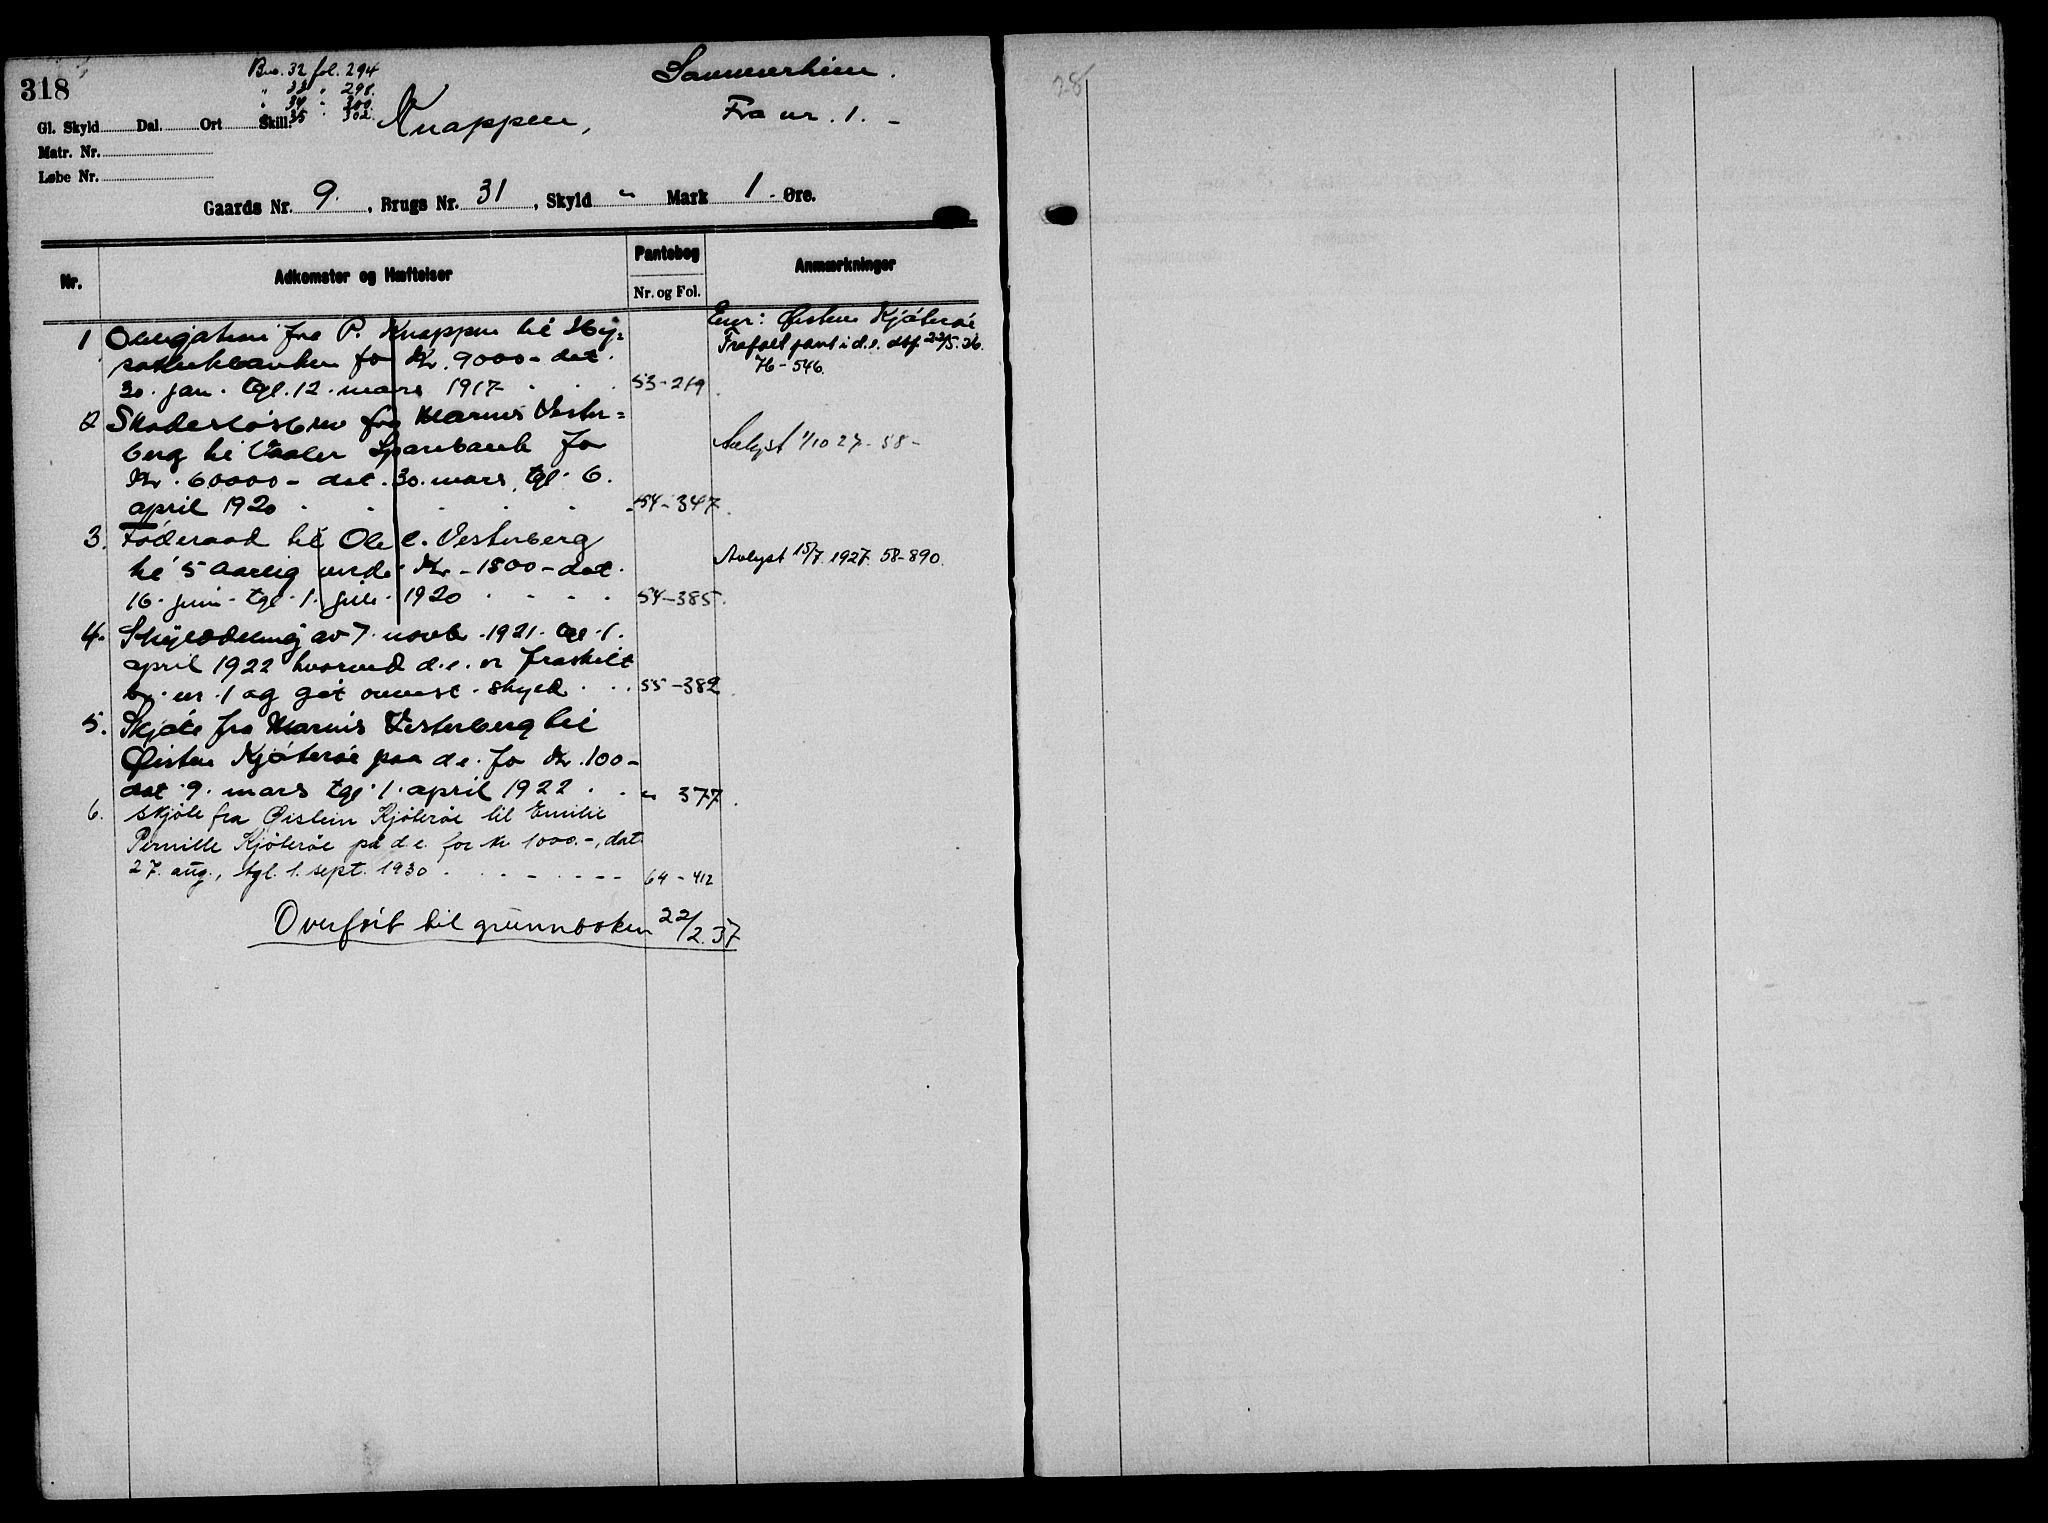 318
Brs. 32 fol. 294
" 33 " 298.
" 34 " 300.
" 35 " 302.
Sommerheim.
Gl. Skyld Dal. Ort Skill.
Knappen,
Fra nr. 1. -
Matr. Nr.
Løbe Nr.
Gaards Nr. 9. , Brugs Nr. 31 , Skyld " Mark 1. Øre.
Nr.
Adkomster og Hæftelser
Pantebog
Nr. og Fol.
Anmærkninger
1 Obligation fra P. Knappen til Hy=
potekbanken for Kr. 9000 - dat.
30. jan. tgl. 12. mars 1917 . . . 53-219.
Eier: Øisten Kjøterøe
Frafalt pant i d.e. dtf. 23/5.36.
76-546.
2 Skadesløsbrev fra Marius Vester=
berg til Vaaler Sparebank for
Kr. 60000 - dat. 30. mars, tgl. 6.
april 1920 . . . . . 54-347.
Avlyst 1/10 27. 58-
3. Føderaad til Ole C. Vesterberg
til 5 aarlig verdi Kr. 1800 - dat.
16. juni - tgl. 1. juli 1920 . . . . 54-385.
Avlyst 15/7 1927. 58-890.
4. Skylddeling av 7. novbr. 1921. tgl. 1.
april 1922 hvorved d.e. er fraskilt
br. nr. 1 og git ovenst. skyld . . . 55-382.
5. Skjøte fra Marius Vesterberg til
Øisten Kjøterøe paa d.e. for Kr. 100 -
dat. 9. mars tgl. 1. april 1922 . . " 377.
6. Skjøte fra Øistein Kjøterøe til Emilie
Pernille Kjøterøe på d.e. for kr 1000.-, dat.
27. aug., tgl. 1. sept. 1930 . . . 64-412
Overført til grunnboken 22/2.37
28